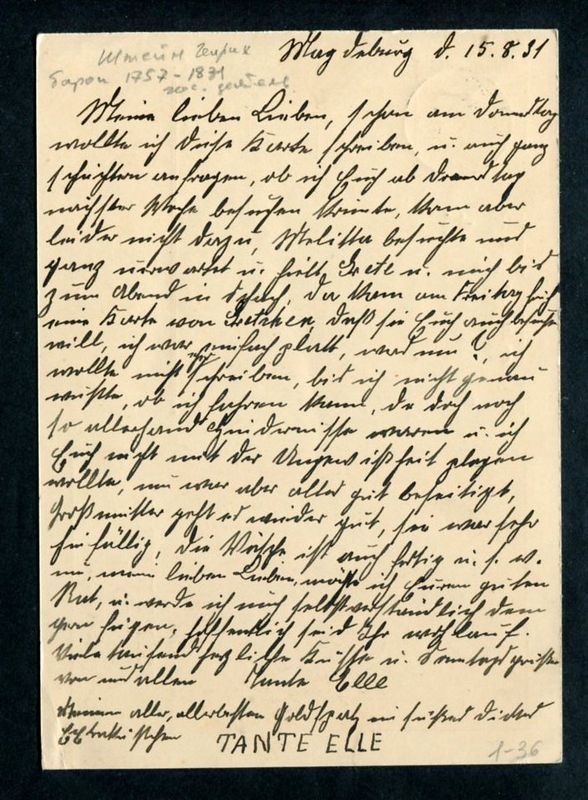 Штейн Генрих
барон 1757-1831
гос. деятель
Magdeburg d. 15.8.31
Meine lieben Lieben, schon am Donnstag
wollte ich diese Karte schreiben, u. auch ganz
schüchtern anfragen, ob ich Euch ab Donnstag
nächster Woche besuchen könnte, kam aber
leider nicht dazu, Melitta besuchte uns
ganz unerwartet u. hielt Grete u. mich bis
zum Abend in Schach, da kam am Freitag früh
eine Karte von Gretchen, daß sie Euch auch besuchen
will, ich war einfach platt, was nu?, ich
wollte nicht eher schreiben, bis ich nicht genau
wußte, ob ich fahren kann, da doch noch
so allerhand Hindernisse waren u. ich
Euch nicht mit der Ungewißheit plagen
wollte, nu war aber alles gut beseitigt,
Großmutter geht es wieder gut, sie war sehr
hinfällig, die Wäsche ist auch fertig u. s. w.
nu, meine lieben Lieben, möchte ich Euren guten
Rat, u. werde ich mich selbstverständlich dem
gern fügen, hoffentlich seid Ihr wohlauf.
Viele tausend herzliche Küsse u. Sonntagsgrüße
von uns allen Tante Elle
Meinem aller, allerbesten Goldspatz ein süßes dickes
TANTE ELLE
1-36